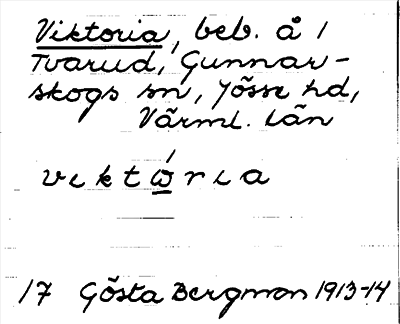 Viktoria, beb. å 1
Tvarud, Gunnar-
skogs sn, Jösse hd,
Värml. län
vıktώ̲rıa
17 Gösta Bergman 1913-14